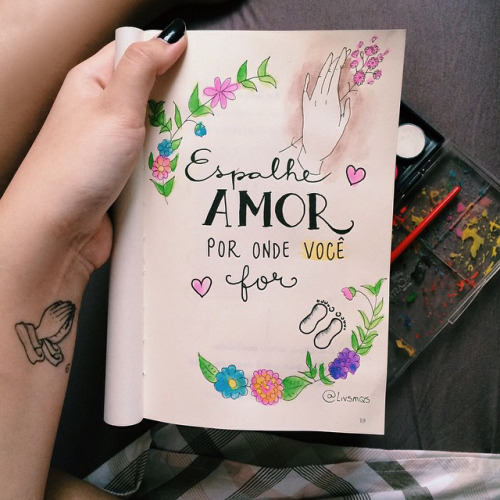 Espalhe
AMOR
POR ONDE VOCÊ
for
@Livsmgs